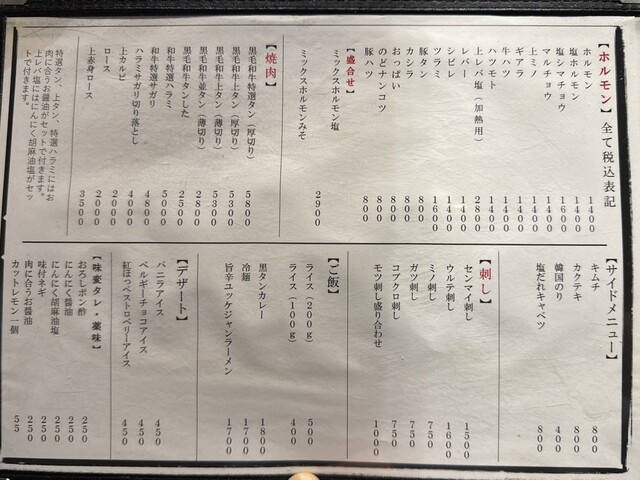 【ホルモン】全て税込表記
ホルモン 1400
塩ホルモン 1400
塩シマチョウ 1600
マルチョウ 1400
上ミノ 1400
ギアラ 1400
牛ハツ 1400
ハツモト 1400
上レバ塩（加熱用） 2800
レバー 1400
シビレ 1400
ツラミ 1600
豚タン 800
カシラ 800
おっぱい 800
のどナンコツ 800
豚ハツ 800
【盛合せ】
ミックスホルモン塩
ミックスホルモンみそ
2900
【焼肉】
黒毛和牛特選タン（厚切り） 5800
黒毛和牛上タン（厚切り） 5300
黒毛和牛上タン（薄切り） 5300
黒毛和牛並タン（薄切り） 2800
黒毛和牛タンした 2500
和牛特選ハラミ 5000
和牛特選サガリ 4800
ハラミサガリ切り落とし 4000
上カルビ 2000
ロース 2000
上赤身ロース 3500
特選タン、上タン、特選ハラミにはお
肉に合うお醤油がセットで付きます。
上レバ塩にはにんにく胡麻油塩がセッ
トで付きます。
【サイドメニュー】
キムチ 800
カクテキ 800
韓国のり 400
塩だれキャベツ 800
【刺し】
センマイ刺し 1500
ウルテ刺し 1600
ミノ刺し 750
ガツ刺し 750
コブクロ刺し 750
モツ刺し盛り合わせ 1000
【ご飯】
ライス（200g） 500
ライス（100g） 400
黒タンカレー 1800
冷麺 1700
旨辛ユッケジャンラーメン 1700
【デザート】
バニラアイス 450
ベルギーチョコアイス 450
紅ほっぺストロベリーアイス 450
【味変タレ・薬味】
おろしポン酢 250
にんにく醤油 250
にんにく胡麻油塩 250
味付ネギ 250
肉に合うお醤油 250
カットレモン一個 55